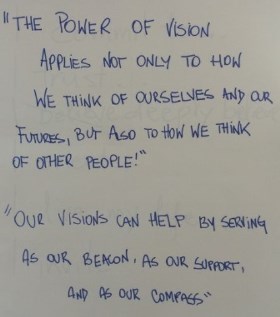 "THE POWER OF VISION
APPLIES NOT ONLY TO HOW
WE THINK OF OURSELVES AND OUR
FUTURES, BUT ALSO TO HOW WE THINK
OF OTHER PEOPLE!"
"OUR VISIONS CAN HELP BY SERVING
AS OUR BEACON, AS OUR SUPPORT,
AND AS OUR COMPASS"